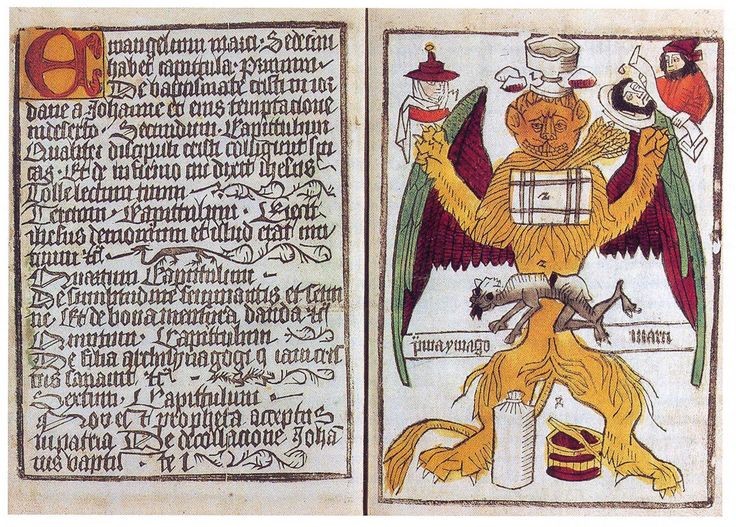 Ewangelium marci · Sedecim
habet capitula · Primum ·
De baptismate cristi in ior
dane a Johanne et eius temptacione
in deserto · Secundum · Capitulum
Qualiter discipuli cristi colligerunt spi
cas · Et de infirmo cui dixit ihesus
Tolle lectum tuum
Tercium · Capitulum · Eiecit
ihesus demonium et illud erat mu
tum
Quartum Capitulum
De similitudine seminantis et
ne Et de bona mensura danda
Quintum · Capitulum
De filia archisynagogi q
sanauit
Sextum · Capitulum
propheta acceptus
in patria De decollacione Johan
nis bapti
2
prima ymago
marci